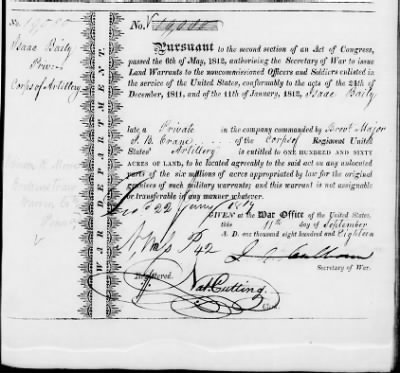 No.
No. 19,000
Isaac Baily
Private
Corps of Artillery
WAR DEPARTMENT.
Pursuant to the second section of an Act of Congress,
passed the 6th of May, 1812, authorising the Secretary of War to issue
Land Warrants to the noncommissioned Officers and Soldiers enlisted in
the service of the United States, conformably to the acts of the 24th of
December, 1811, and of the 11th of January, 1812, Isaac Baily
late a Private in the company commanded by Brevt Major
I. B. Crane of the Corps of Regiment United
States Artillery is entitled to ONE HUNDRED AND SIXTY
ACRES OF LAND, to be located agreeably to the said act on any unlocated
parts of the six millions of acres appropriated by law for the original
grantees of such military warrants; and this warrant is not assignable
or transferable in any manner whatever.
22
GIVEN at the War Office of the United States,
this 11th day of September
A. D. one thousand eight hundred and Eighteen
P 42
J. C. Calhoun
Secretary of War.
Registered.
Nat. Cutting.
Clerk.